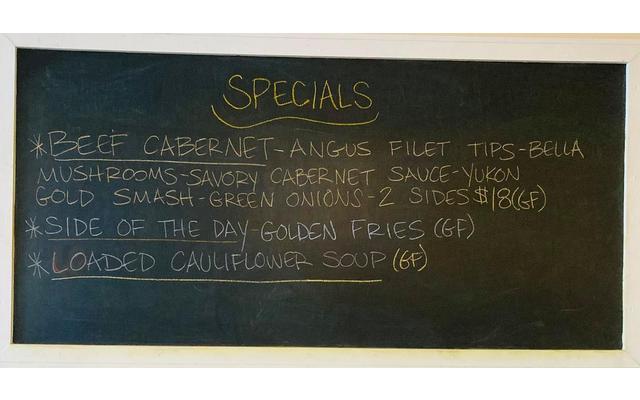 SPECIALS
*BEEF CABERNET-ANGUS FILET TIPS-BELLA
MUSHROOMS-SAVORY CABERNET SAUCE-YUKON
GOLD SMASH-GREEN ONIONS-2 SIDES $18(GF)
*SIDE OF THE DAY-GOLDEN FRIES (GF)
*LOADED CAULIFLOWER SOUP (GF)